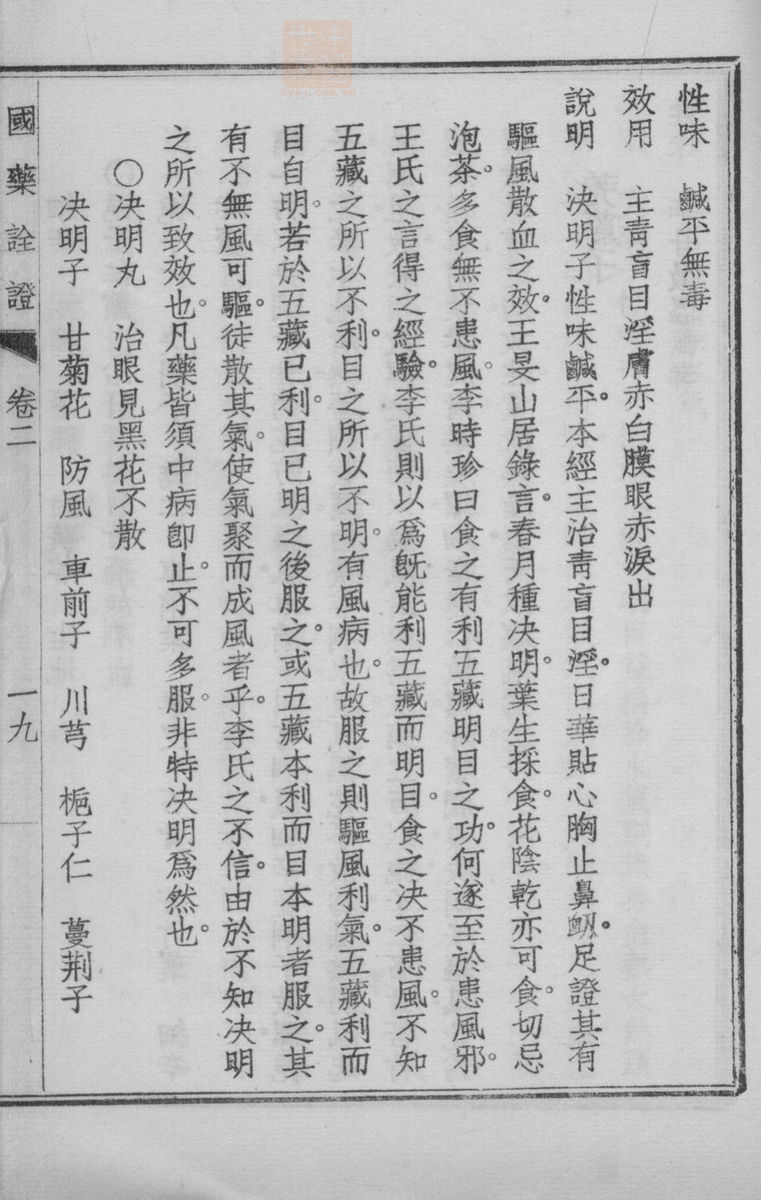 性味　鹹平無毒
效用　主靑盲目淫膚赤白膜眼赤淚出
說明　決明子性味鹹平。本經主治靑盲目淫。日華貼心胸止鼻衂。足證其有
驅風散血之效。王旻山居錄言。春月種決明。葉生採食。花陰乾亦可食。切忌
泡茶。多食無不患風。李時珍曰食之有利五藏明目之功。何遂至於患風邪。
王氏之言得之經驗。李氏則以爲旣能利五藏而明目。食之决不患風。不知
五藏之所以不利。目之所以不明。有風病也。故服之則驅風利氣。五藏利而
目自明。若於五藏已利。目已明之後服之。或五藏本利而目本明者服之。其
有不無風可驅。徒散其氣。使氣聚而成風者乎。李氏之不信。由於不知決明
之所以致效也。凡藥皆須中病卽止。不可多服。非特決明爲然也。
〇決明丸　治眼見黑花不散
決明子　甘菊花　防風　車前子　川芎　梔子仁　蔓荆子
國藥詮證　卷二　一九